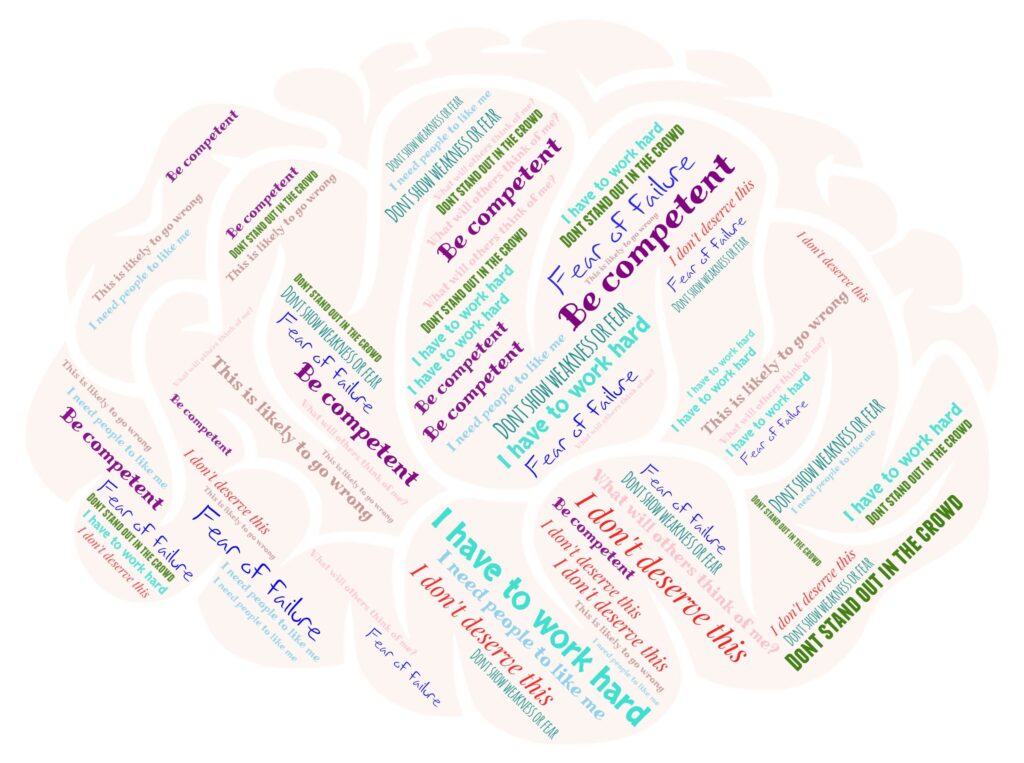 Be competent
This is likely to go wrong
I need people to like me
Be competent
DONT STAND OUT IN THE CROWD
This is likely to go wrong
DONT SHOW WEAKNESS OR FEAR
I need people to like me
DONT SHOW WEAKNESS OR FEAR
What will others think of me?
DONT STAND OUT IN THE CROWD
What will others think of me?
Be competent
What will others think of me?
DONT STAND OUT IN THE CROWD
I have to work hard
I have to work hard
Be competent
Be competent
I need people to like me
DONT SHOW WEAKNESS OR FEAR
I have to work hard
Fear of Failure
What will others think of me?
I have to work hard
DONT STAND OUT IN THE CROWD
Fear of Failure
This is likely to go wrong
Be competent
I don't deserve this
Fear of Failure
DONT SHOW WEAKNESS OR FEAR
I don't deserve this
I have to work hard
I have to work hard
This is likely to go wrong
What will others think of me?
I have to work hard
Fear of Failure
DONT SHOW WEAKNESS OR FEAR
I need people to like me
I have to work hard
DONT STAND OUT IN THE CROWD
DONT STAND OUT IN THE CROWD
DONT SHOW WEAKNESS OR FEAR
Fear of Failure
Be competent
What will others think of me?
What will others think of me?
This is likely to go wrong
This is likely to go wrong
This is likely to go wrong
I need people to like me
Be competent
Fear of Failure
DONT STAND OUT IN THE CROWD
I have to work hard
I don't deserve this
Be competent
I don't deserve this
This is likely to go wrong
Fear of Failure
I need people to like me
I need people to like me
What will others think of me?
Fear of Failure
I have to work hard
I need people to like me
I don't deserve this
DONT SHOW WEAKNESS OR FEAR
Fear of Failure
DONT SHOW WEAKNESS OR FEAR
What will others think of me?
I don't deserve this
Be competent
I don't deserve this
I don't deserve this
This is likely to go wrong
I need people to like me
DONT STAND OUT IN THE CROWD
I don't deserve this
DONT SHOW WEAKNESS OR FEAR
DONT STAND OUT IN THE CROWD